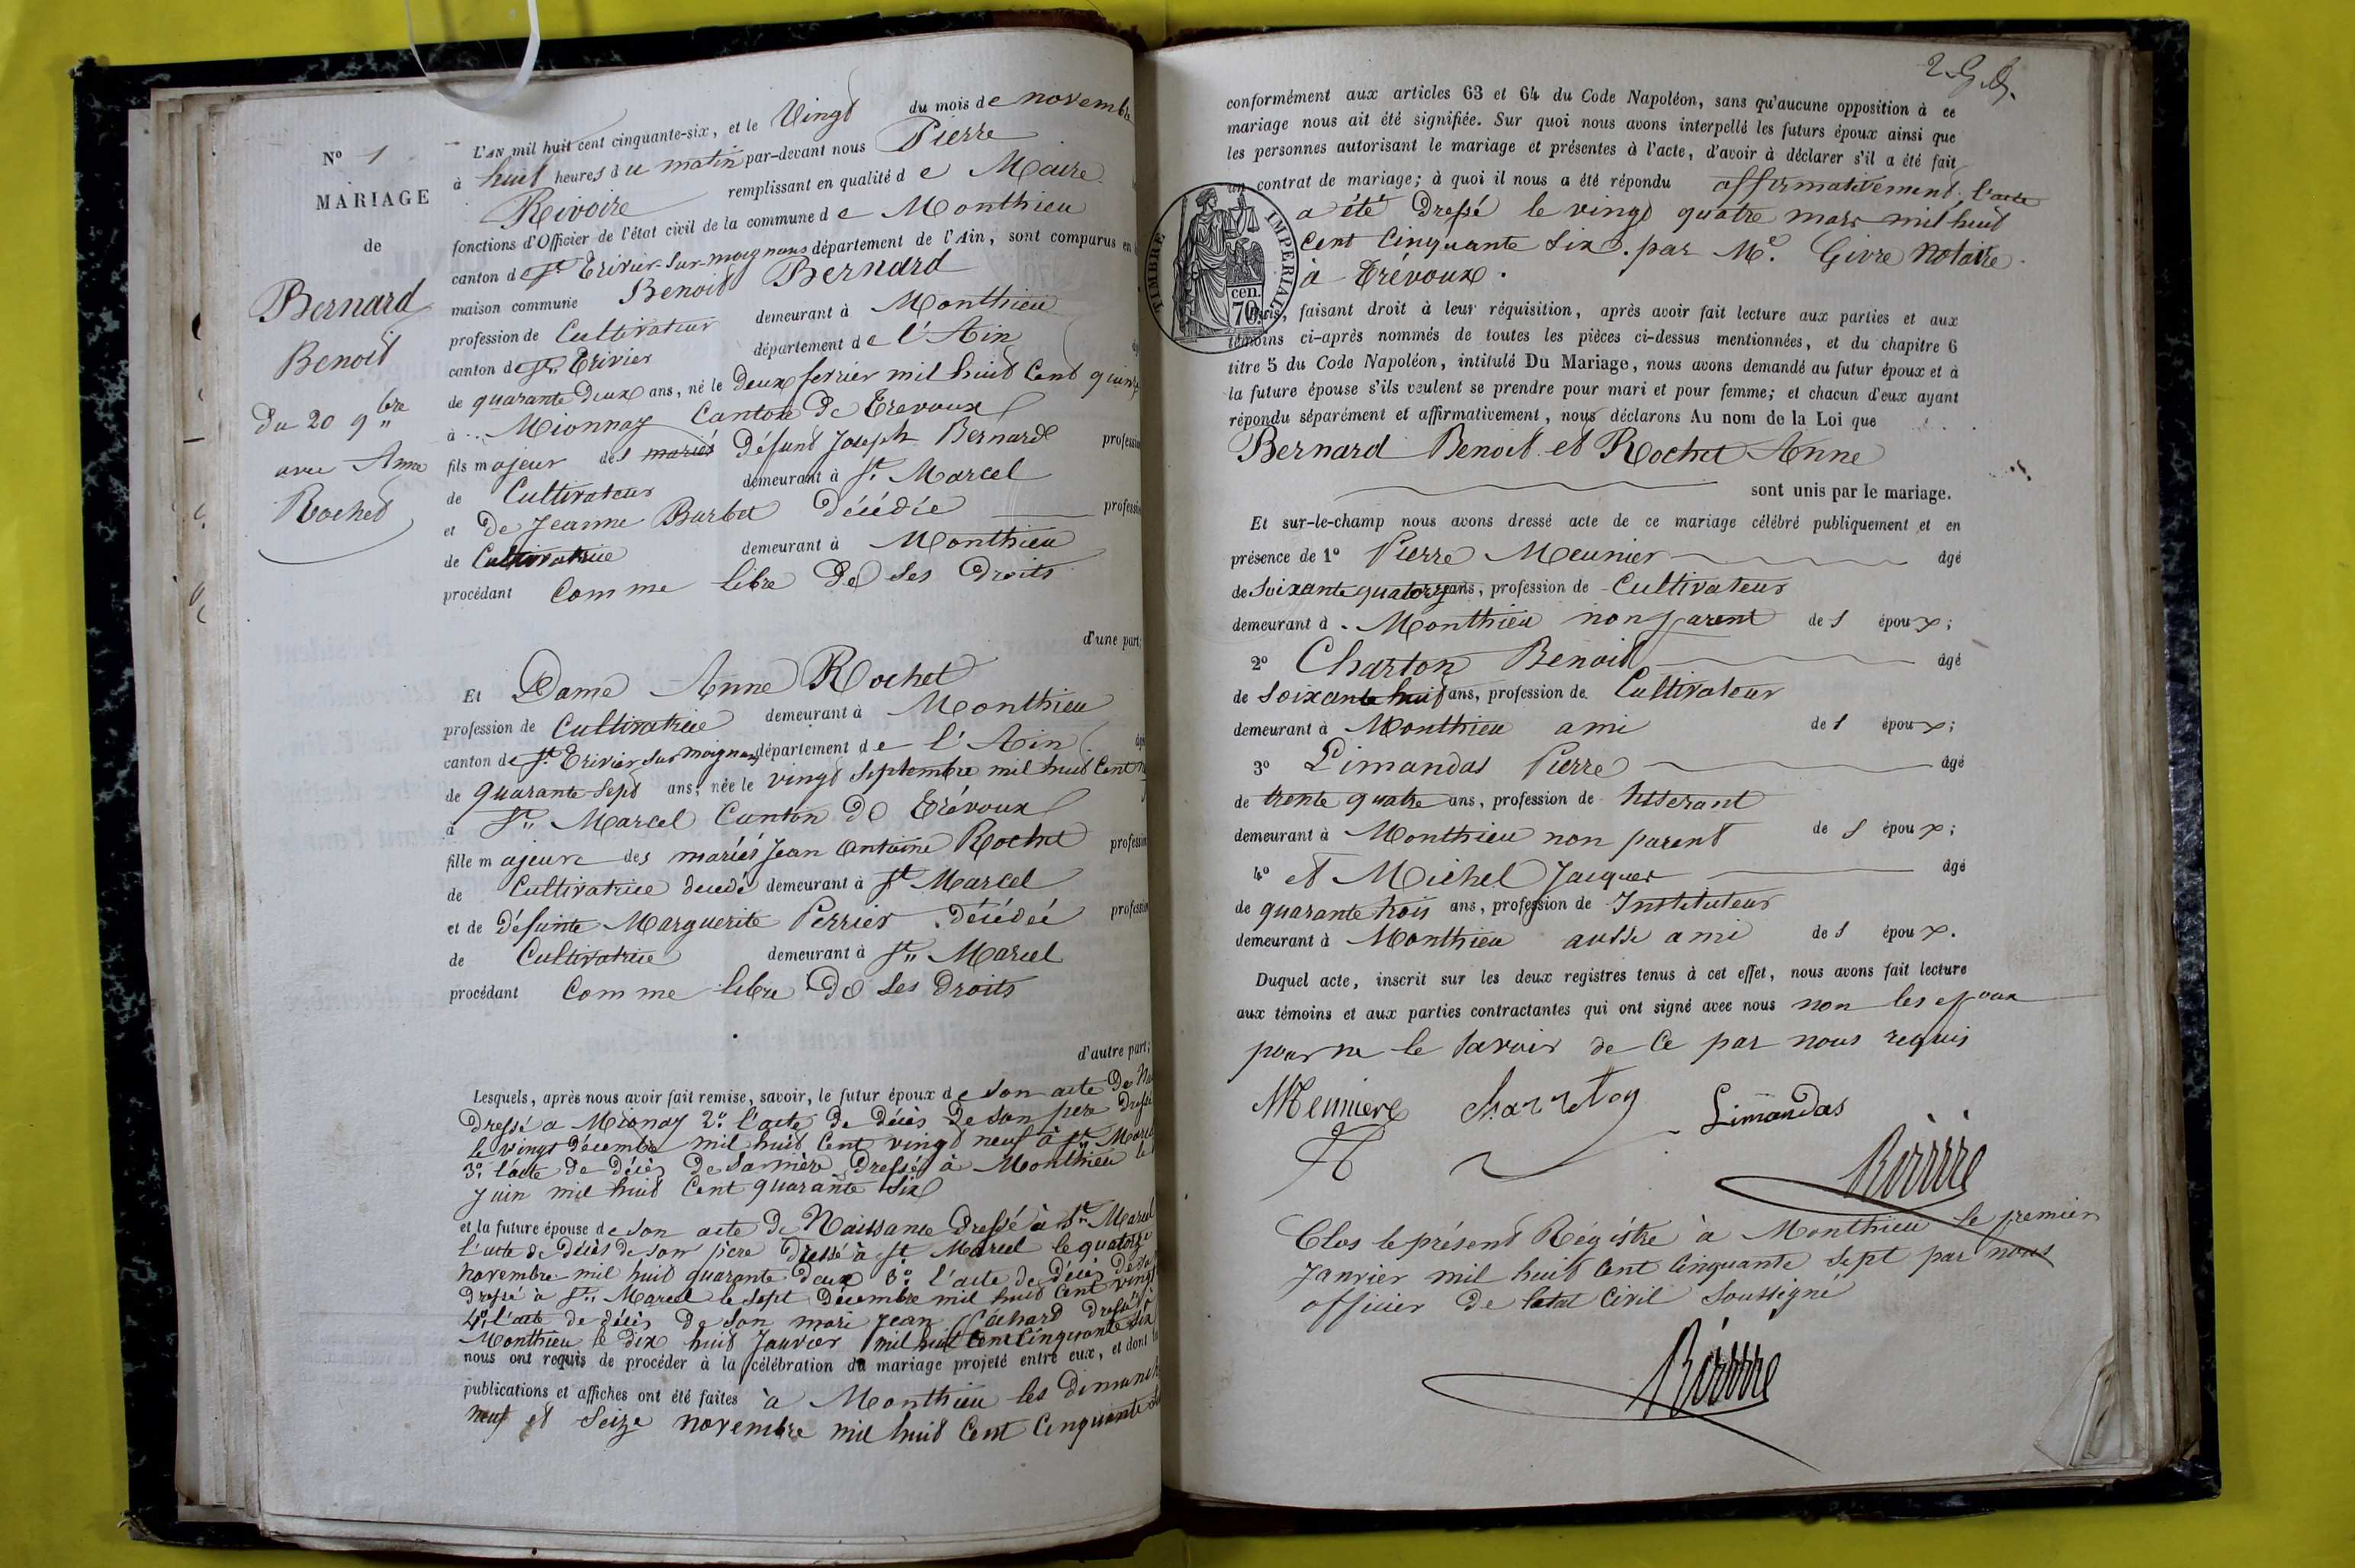 N° 1
MARIAGE
de
Bernard
Benoit
Du 20 9bre
avec Anne
Rochet
L'AN mil huit cent cinquante-six, et le Vingt du mois de novembre
à huit heures du matin par-devant nous Pierre
Rivoire remplissant en qualité de Maire
fonctions d'Officier de l'état civil de la commune de Monthieu
canton de St Trivier-sur-moignans département de l'Ain, sont comparus en
maison commune Benoit Bernard
profession de Cultivateur demeurant à Monthieu
canton de St Trivier département de l'Ain
de quarante deux ans, né le deux fevrier mil huit Cent quinze
à Mionnay Canton De Trevoux
fils majeur des mariés Défunt Joseph Bernard profession
de Cultivateur demeurant à St Marcel
et de Jeanne Burbet Décédée profession
de Cultivatrice demeurant à Monthieu
procédant Comme libre De Ses Droits
d'une part;
Et Dame Anne Rochet
profession de Cultivatrice demeurant à Monthieu
canton de St Trivier sur moignans département de l'Ain
de quarante Sept ans, née le vingt Septembre mil huit Cent
à St Marcel Canton De Trévoux
fille majeure des mariés Jean Antoine Rochet profession
de Cultivatrice decedé demeurant à St Marcel
et de Défunte Marguerite Perrier Décédée profession
de Cultivatrice demeurant à St Marcel
procédant Comme libre De Ses Droits
d'autre part;
Lesquels, après nous avoir fait remise, savoir, le futur époux de Son acte De
Dressé a Mionay 2° l'acte De Décès De Son pere Dressé
le vingt Décembre mil huit Cent vingt neuf à St Marcel
3° l'acte De Décès De Sa mère Dressé à Monthieu le
Juin mil huit Cent quarante Six
et la future épouse de Son acte De Naissance Dressé à St Marcel
l'acte De Décès De Son père Dressé à St Marcel le quatorze
novembre mil huit quarante Deux 3° l'acte De Décès De Sa
Dressé à St Marcel le Sept Décembre mil huit Cent vingt
4° l'acte De Décès De Son mari Jean Cachard Dressé à
Monthieu le Dix huit Janvier mil huit Cent Cinquante Six
nous ont requis de procéder à la célébration du mariage projeté entre eux, et dont
publications et affiches ont été faites à Monthieu les Dimanche
neuf et Seize novembre mil huit Cent Cinquante
conformément aux articles 63 et 64 du Code Napoléon, sans qu'aucune opposition à ce
mariage nous ait été signifiée. Sur quoi nous avons interpellé les futurs époux ainsi que
les personnes autorisant le mariage et présentes à l'acte, d'avoir à déclarer s'il a été fait
un contrat de mariage; à quoi il nous a été répondu affirmativement, l'acte
a été Dressé le vingt quatre mars mil huit
Cent Cinquante Six par Me Givre Notaire
à Trévoux.
TIMBRE IMPERIAL
70 cen.
Puis, faisant droit à leur réquisition, après avoir fait lecture aux parties et aux
témoins ci-après nommés de toutes les pièces ci-dessus mentionnées, et du chapitre 6
titre 5 du Code Napoléon, intitulé Du Mariage, nous avons demandé au futur époux et à
la future épouse s'ils veulent se prendre pour mari et pour femme; et chacun d'eux ayant
répondu séparément et affirmativement, nous déclarons Au nom de la Loi que
Bernard Benoit et Rochet Anne
sont unis par le mariage.
Et sur-le-champ nous avons dressé acte de ce mariage célébré publiquement et en
présence de 1° Pierre Meunier âgé
de Soixante quatorze ans, profession de Cultivateur
demeurant à Monthieu non parent des époux;
2° Charton Benoit âgé
de Soixante huit ans, profession de Cultivateur
demeurant à Monthieu ami des époux;
3° Limandas Pierre âgé
de trente quatre ans, profession de tisserant
demeurant à Monthieu non parent des époux;
4° et Michel Jacques âgé
de quarante trois ans, profession de Instituteur
demeurant à Monthieu aussi ami des époux.
Duquel acte, inscrit sur les deux registres tenus à cet effet, nous avons fait lecture
aux témoins et aux parties contractantes qui ont signé avec nous non les epoux
pour ne le Savoir de Ce par nous requis
Meuniere Charreton Limandas
Rivoire
Clos le présent Régistre à Monthieu le premier
Janvier mil huit Cent Cinquante Sept par nous
officier De letat Civil Soussigné
Rivoire